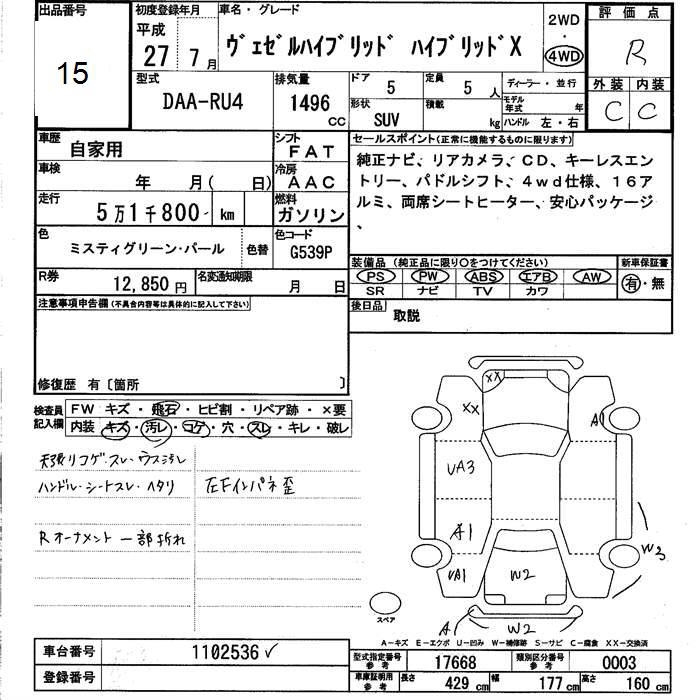 出品番号
15
初度登録年月
平成
27 7月
車名・グレード
ヴェゼルハイブリッド ハイブリッドX
2WD
・
4WD
評価点
R
外装 内装
C C
型式
DAA-RU4
排気量
1496
CC
ドア
5
定員
5 人
形状
SUV
積載
kg
ディーラー・並行
モデル年式 年
ハンドル 左・右
車歴
自家用
シフト
FAT
車検
年 月( 日)
冷房
AAC
走行
5万1千800 km
燃料
ガソリン
色
ミスティグリーン・パール
色替
色コード
G539P
R券
12,850円
名変通知期限
月 日
セールスポイント(正常に機能するものに限ります)
純正ナビ、リアカメラ、CD、キーレスエン
トリー、パドルシフト、4wd仕様、16ア
ルミ、両席シートヒーター、安心パッケージ
、
装備品(純正品に限り○をつけてください)
新車保証書
PS PW ABS エアB AW
SR ナビ TV カワ
有・無
後日品
取説
注意事項申告欄(不具合内容等は具体的に記入して下さい)
修復歴 有〔箇所 〕
検査員
記入欄
FW キズ・飛石・ヒビ割・リペア跡・×要
内装 キズ・汚レ・コゲ・穴・スレ・キレ・破レ
天張リコゲ・スレ・ウス汚レ
ハンドル・シートスレ・ヘタリ
左Fインパネ歪
Rオーナメント一部折れ
XX
XX
A1
UA3
A1
UA1
W2
W3
A1
W2
スペア
A−キズ E−エクボ U−凹み W−補修跡 S−サビ C−腐食 XX−交換済
車台番号
1102536
登録番号
型式指定番号
参考
17668
類別区分番号
参考
0003
車庫証明用
参考
長さ
429 cm
幅
177 cm
高さ
160 cm